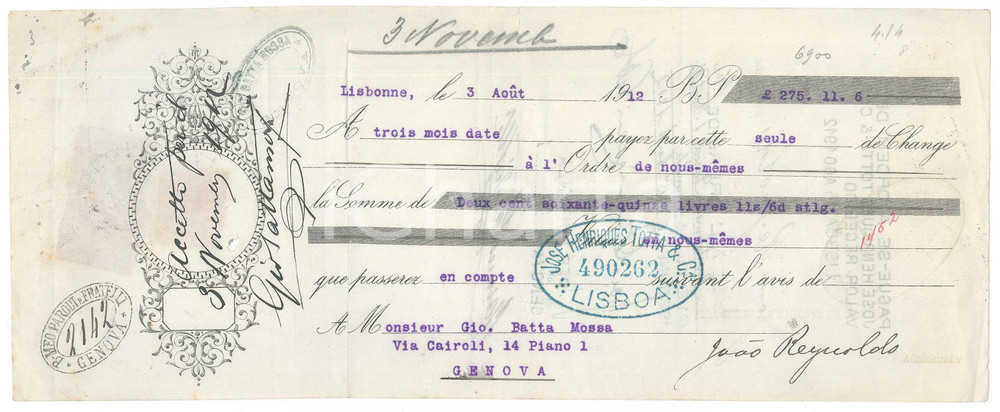 3 Novemb
4.14
6900
Lisbonne, le 3 Août 1912 B.P. £ 275. 11. 6
A trois mois date payez par cette seule de Change
à l'Ordre de nous-mêmes
la Somme de Deux cent soixante-quinze livres 11s/6d stlg.
Valeur en nous-mêmes
que passerez en compte suivant l'avis de
A Monsieur Gio. Batta Mossa
Via Cairoli, 14 Piano 1
GENOVA
João Reynolds
Administrador
JOSÉ HENRIQUES TOTTA & Cª
490262
LISBOA
Accetto per il
3 Novembre 1912
B·MEO PARODI & FRATELLI
2142
GENOVA